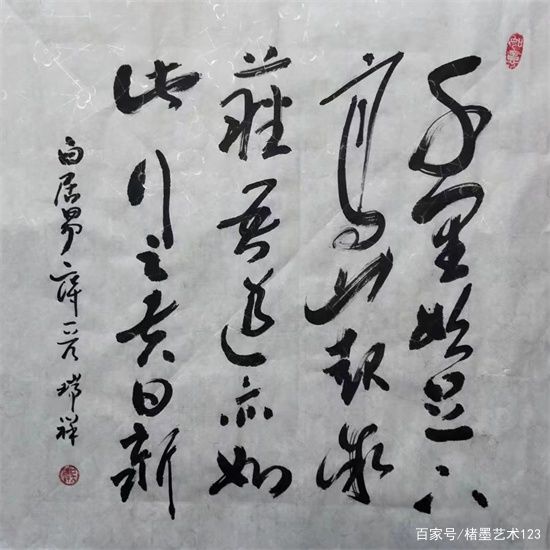 千里始足下
高山起微
塵吾道亦如
此行之贵日新
白居易
瑞祥
百家号/楮墨艺术123